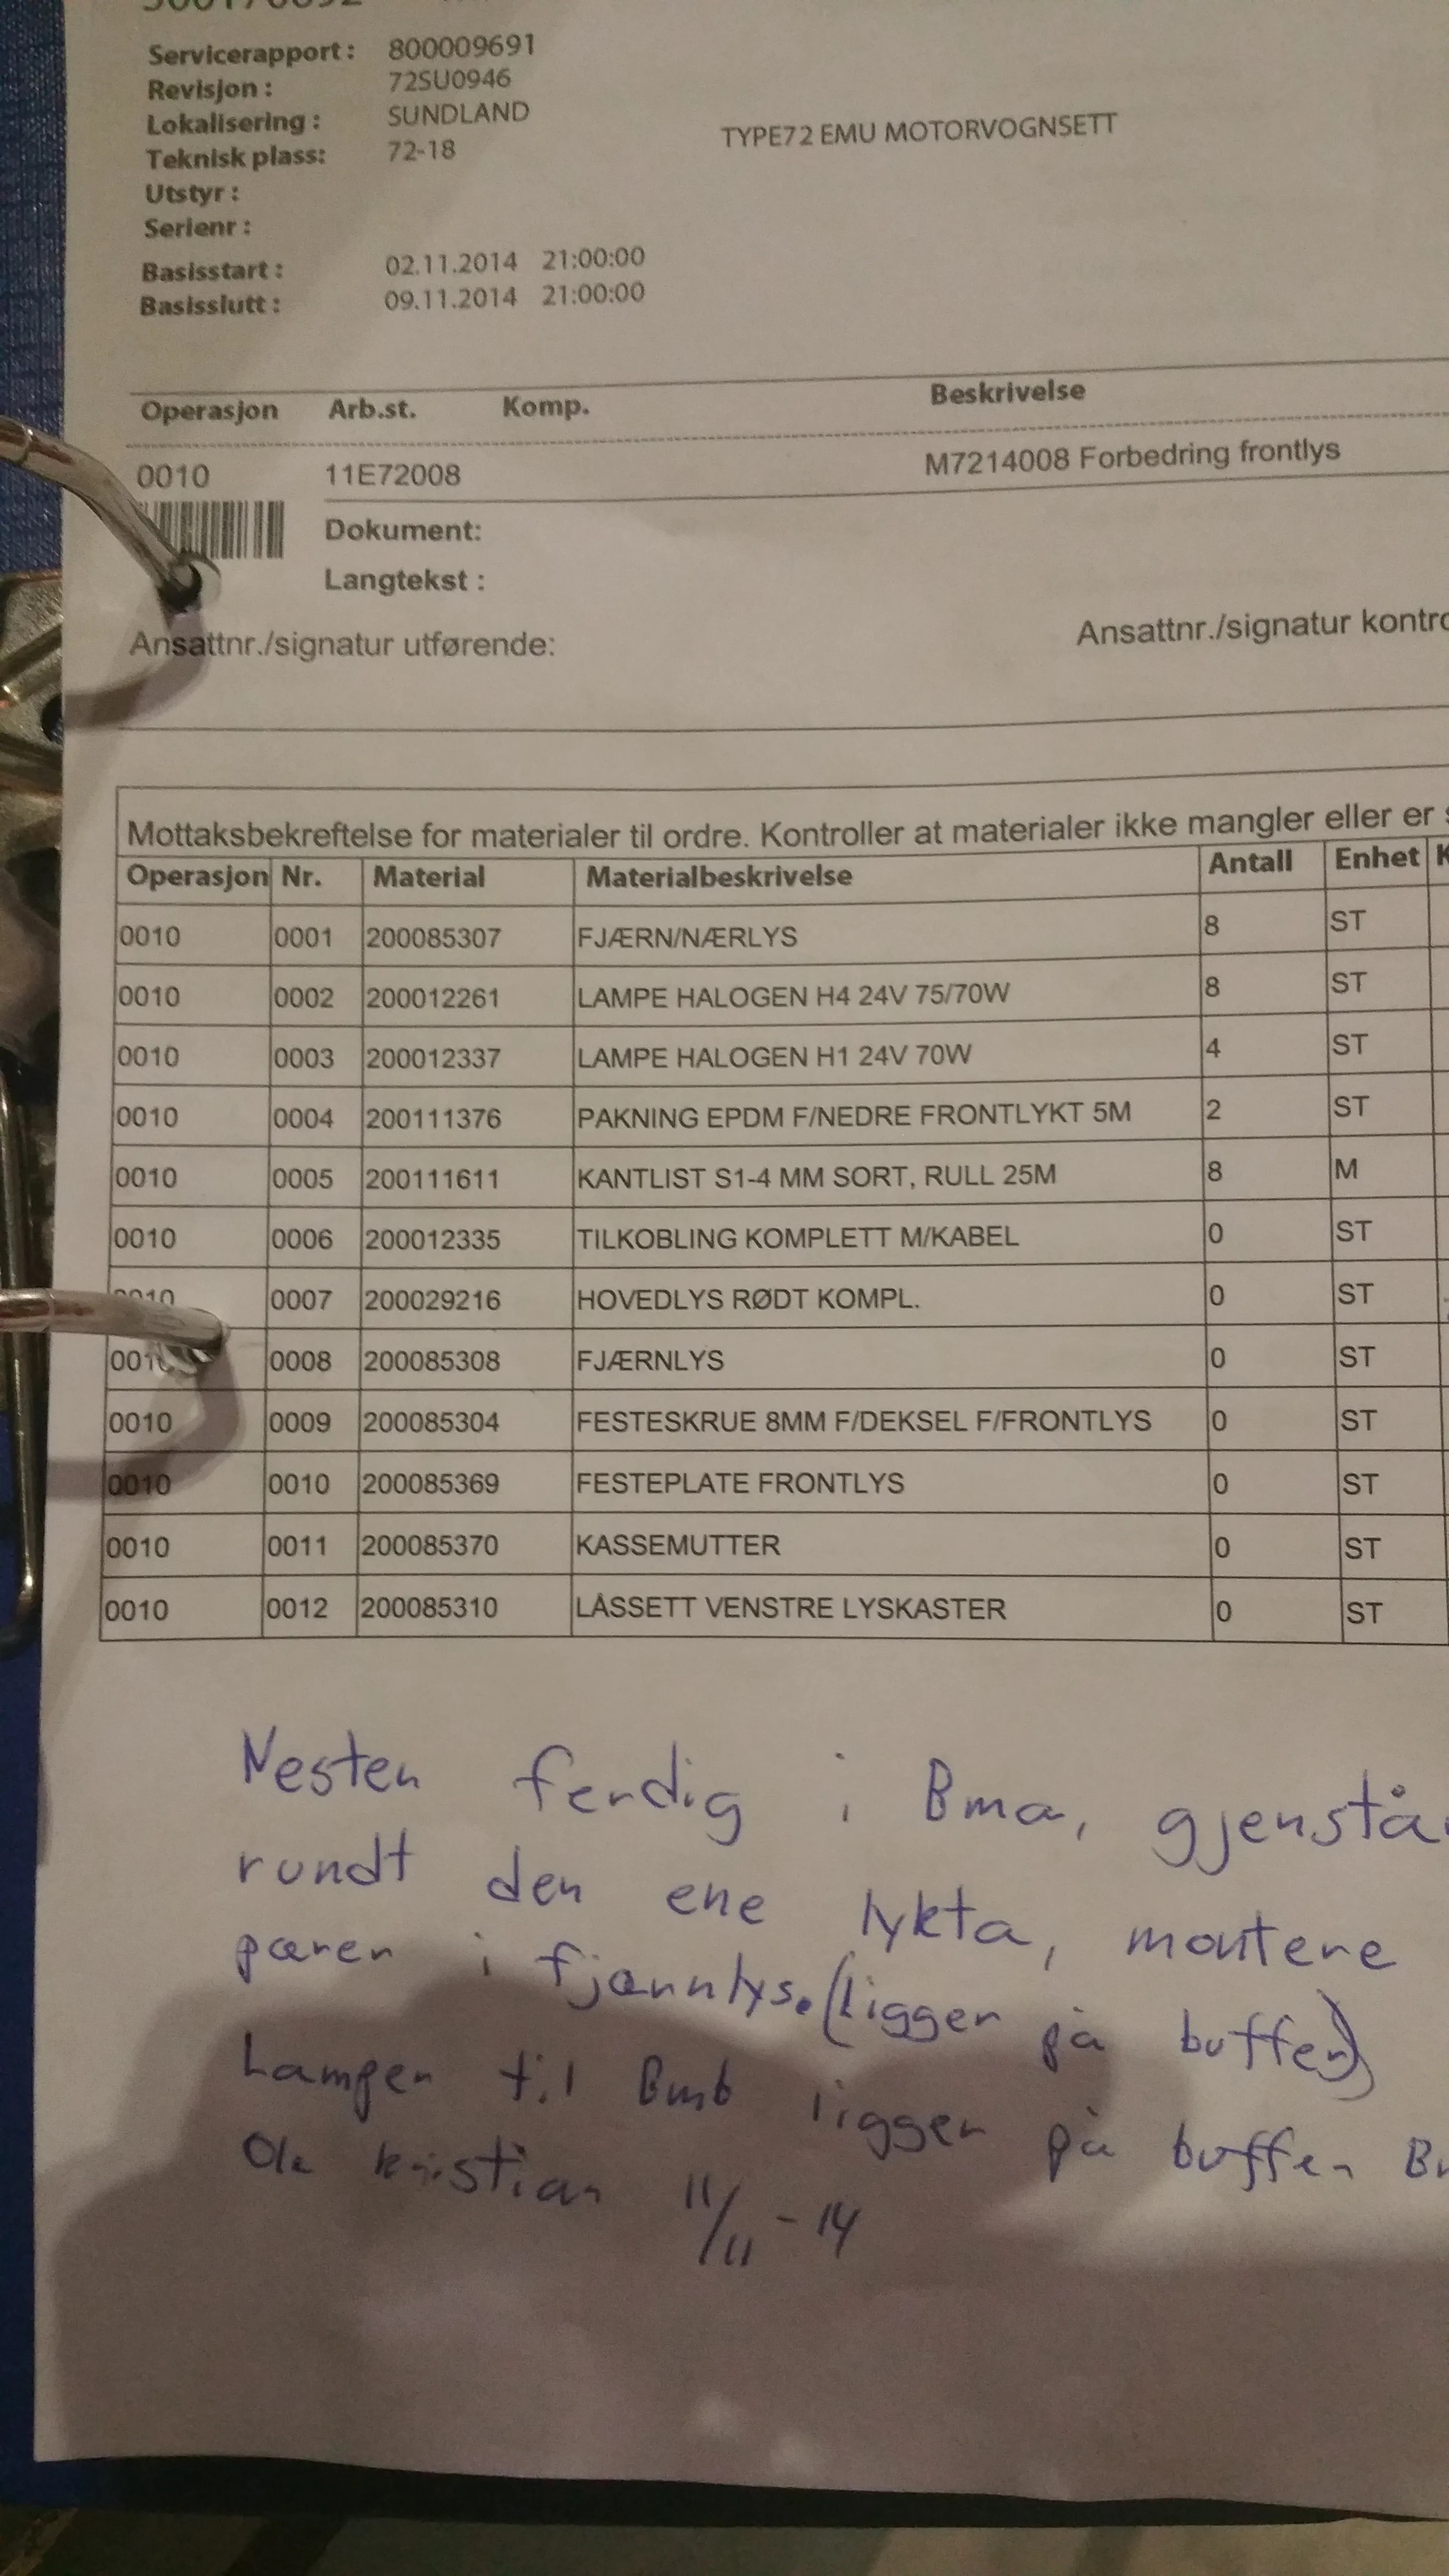 Servicerapport : 800009691
Revisjon : 72SU0946
Lokalisering : SUNDLAND
TYPE72 EMU MOTORVOGNSETT
Teknisk plass: 72-18
Utstyr :
Serienr :
Basisstart : 02.11.2014 21:00:00
Basisslutt : 09.11.2014 21:00:00
Operasjon Arb.st. Komp. Beskrivelse
0010 11E72008 M7214008 Forbedring frontlys
Dokument:
Langtekst :
Ansattnr./signatur utførende: Ansattnr./signatur
Mottaksbekreftelse for materialer til ordre. Kontroller at materialer ikke mangler eller er
Operasjon Nr. Material Materialbeskrivelse Antall Enhet
0010 0001 200085307 FJÆRN/NÆRLYS 8 ST
0010 0002 200012261 LAMPE HALOGEN H4 24V 75/70W 8 ST
0010 0003 200012337 LAMPE HALOGEN H1 24V 70W 4 ST
0010 0004 200111376 PAKNING EPDM F/NEDRE FRONTLYKT 5M 2 ST
0010 0005 200111611 KANTLIST S1-4 MM SORT, RULL 25M 8 M
0010 0006 200012335 TILKOBLING KOMPLETT M/KABEL 0 ST
0010 0007 200029216 HOVEDLYS RØDT KOMPL. 0 ST
0010 0008 200085308 FJÆRNLYS 0 ST
0010 0009 200085304 FESTESKRUE 8MM F/DEKSEL F/FRONTLYS 0 ST
0010 0010 200085369 FESTEPLATE FRONTLYS 0 ST
0010 0011 200085370 KASSEMUTTER 0 ST
0010 0012 200085310 LÅSSETT VENSTRE LYSKASTER 0 ST
Nesten ferdig i Bma, gjenstå
rundt den ene lykta, montere
pærer i fjærnlys. (Ligger på buffer)
Lamper til Bmb ligger på buffer
Ole kristian 11/11-14